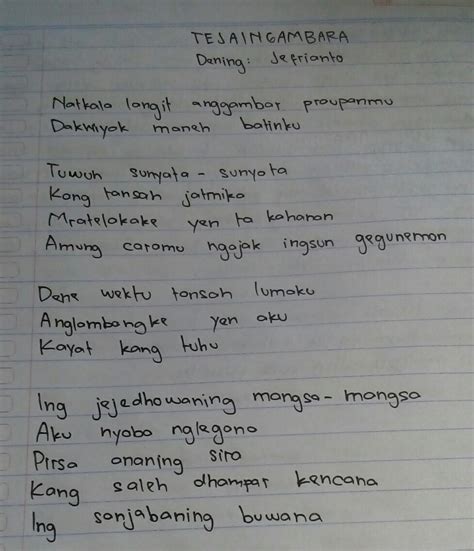 TEJAINGAMBARA
Dening: Jefrianto
Natkala langit anggambar praupanmu
Dakwiyak maneh batinku
Tuwuh sunyata - sunyata
Kang tansah jatmika
Mratelakake yen ta kahanan
Amung caramu ngajak ingsun geguneman
Dene wektu tansah lumaku
Anglambangke yen aku
Kayat kang tuhu
Ing jejedhowaning mangsa - mangsa
Aku nyaba nglegana
Pirsa ananing sira
Kang saleh dhampar kencana
Ing sanjabaning buwana